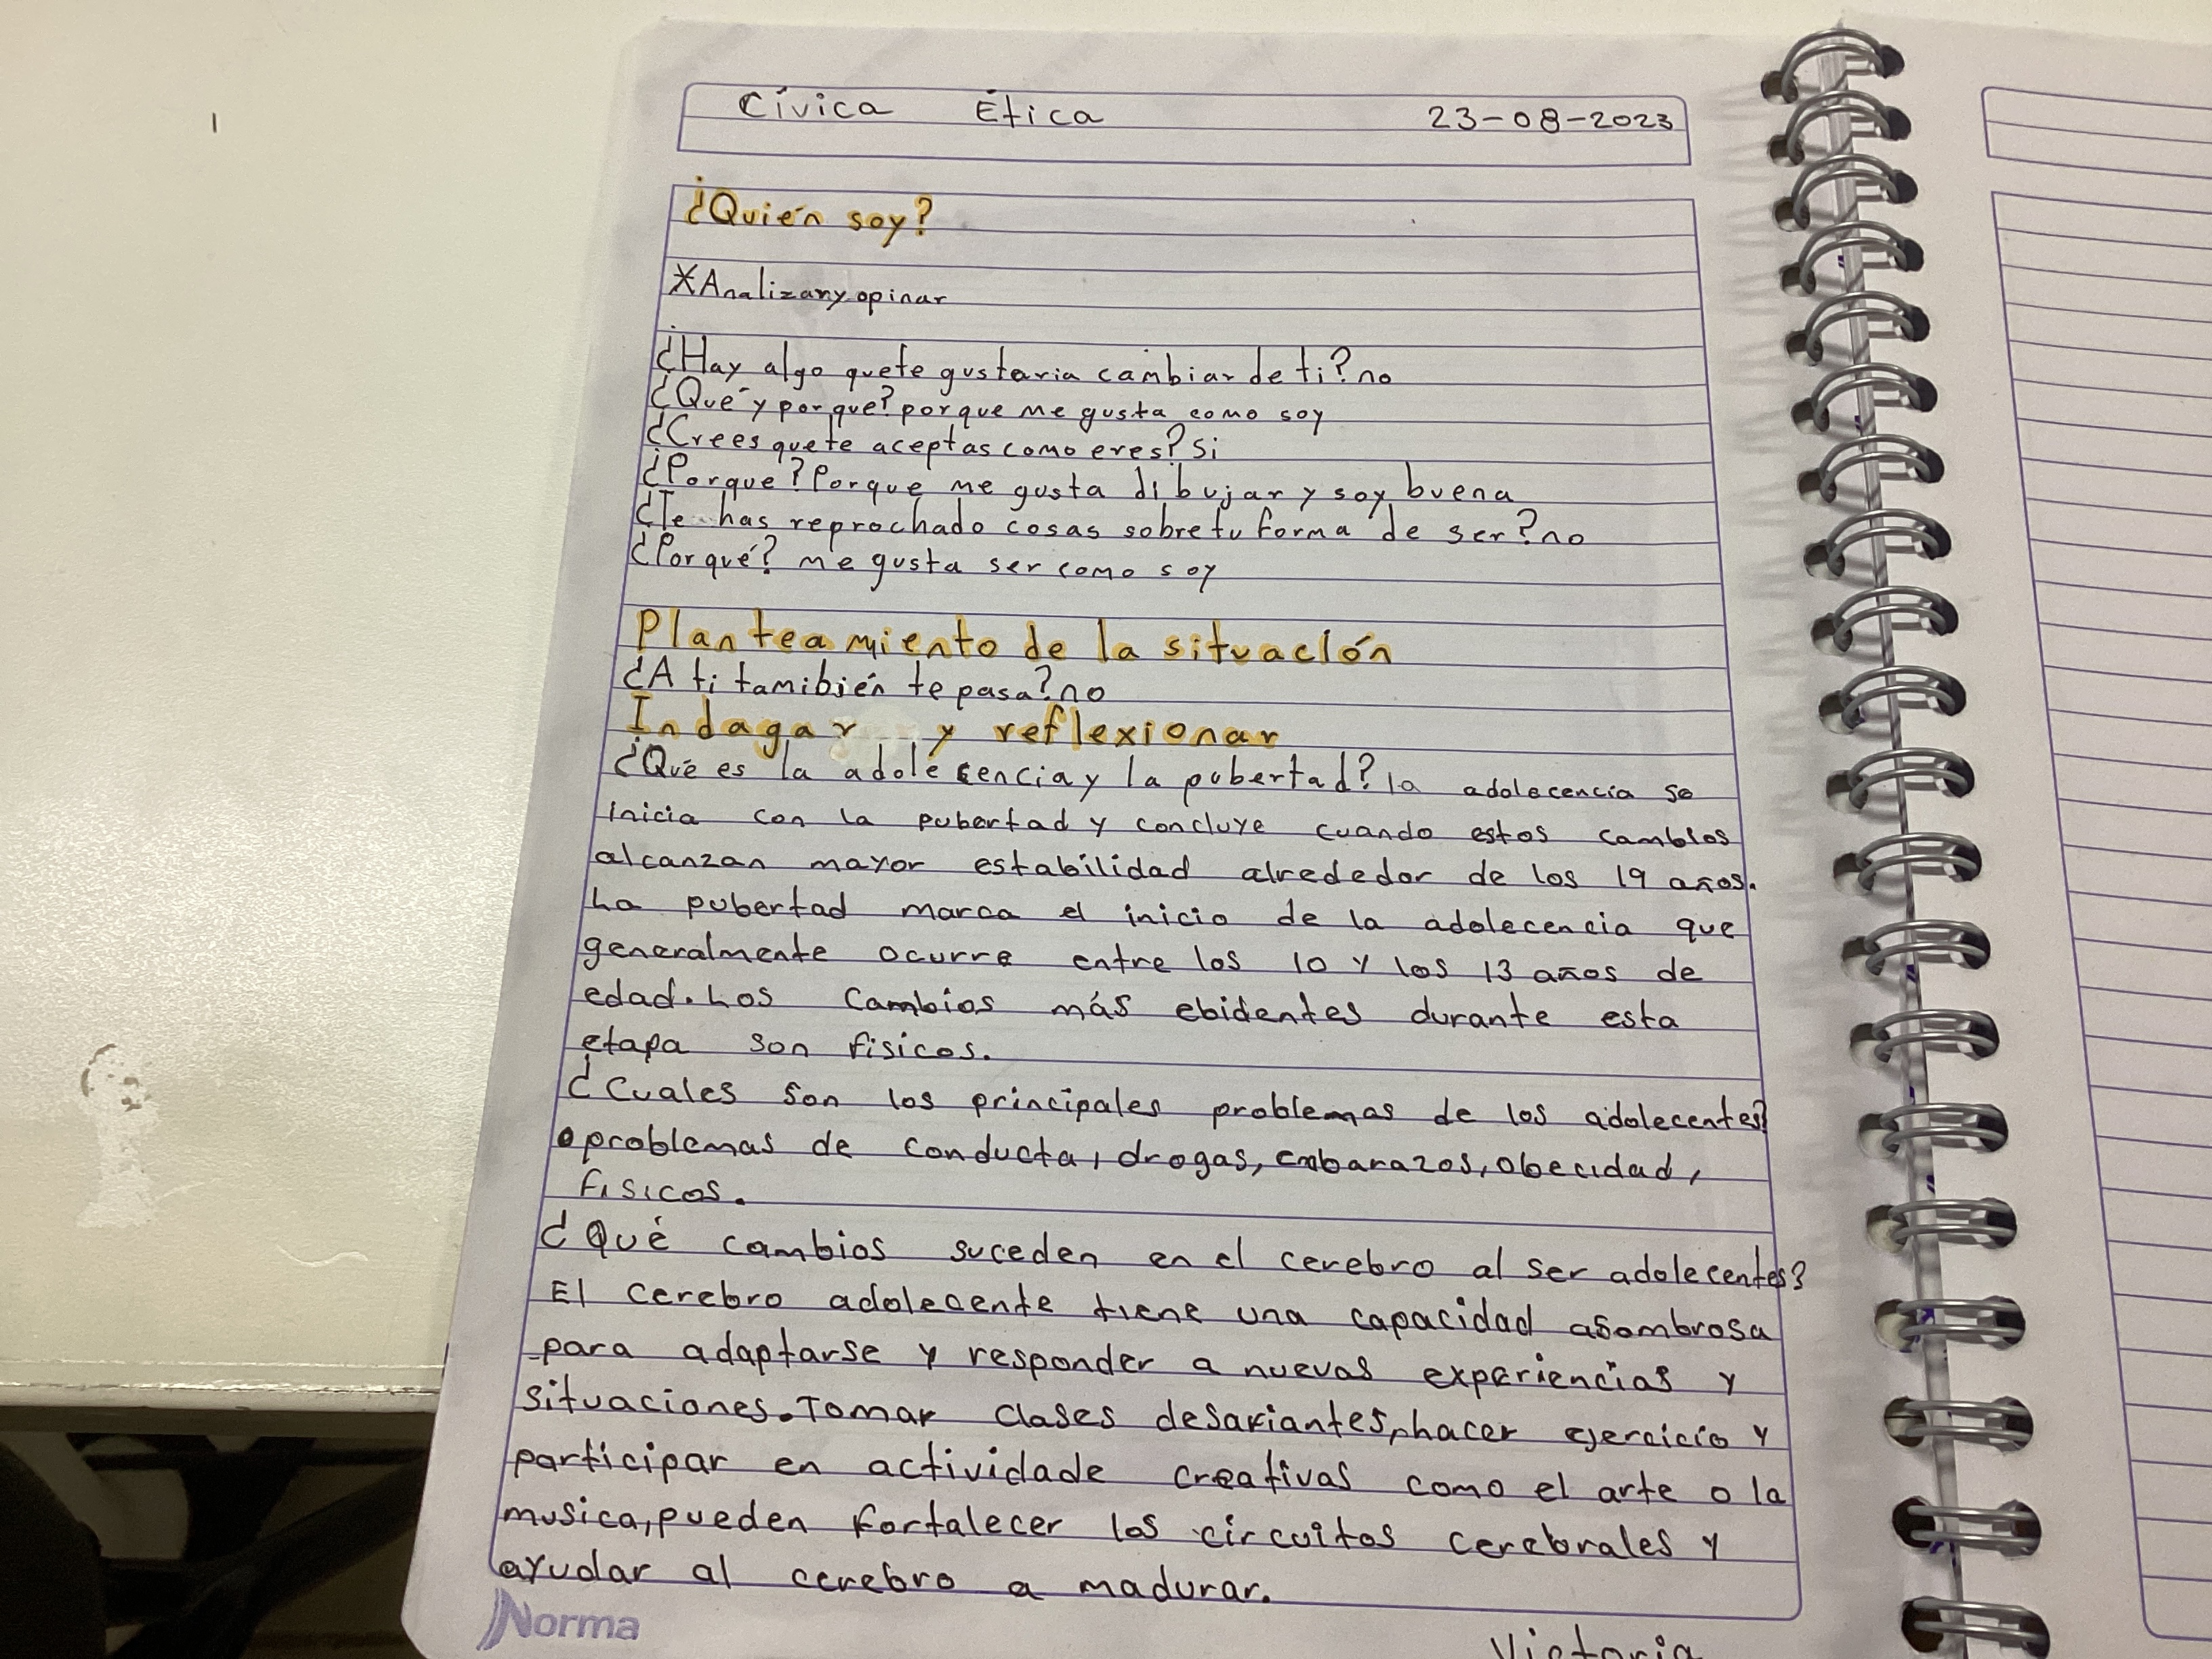 Cívica Ética 23-08-2023
¿Quién soy?
*Analizar y opinar
¿Hay algo que te gustaria cambiar de ti? no
¿Qué y por que? porque me gusta como soy
¿Crees que te aceptas como eres? Si
¿Porque? Porque me gusta dibujar y soy buena
¿Te has reprochado cosas sobre tu forma de ser? no
¿Porqué? me gusta ser como soy
Planteamiento de la situación
¿A ti tamibién te pasa? no
Indagar y reflexionar
¿Qué es la adolecencia y la pubertad? la adolecencia se
inicia con la pubertad y concluye cuando estos cambios
alcanzan mayor estabilidad alrededor de los 19 años.
La pubertad marca el inicio de la adolecencia que
generalmente ocurre entre los 10 y los 13 años de
edad. Los cambios más ebidentes durante esta
etapa son fisicos.
¿Cuales son los principales problemas de los adolecentes?
problemas de conducta, drogas, embarazos, obecidad,
fisicos.
¿Qué cambios suceden en el cerebro al ser adolecentes?
El cerebro adolecente tiene una capacidad asombrosa
para adaptarse y responder a nuevas experiencias y
situaciones. Tomar clases desafiantes, hacer ejercicio y
participar en actividade creativas como el arte o la
musica, pueden fortalecer los circuitos cerebrales y
ayudar al cerebro a madurar.
Norma
Victoria